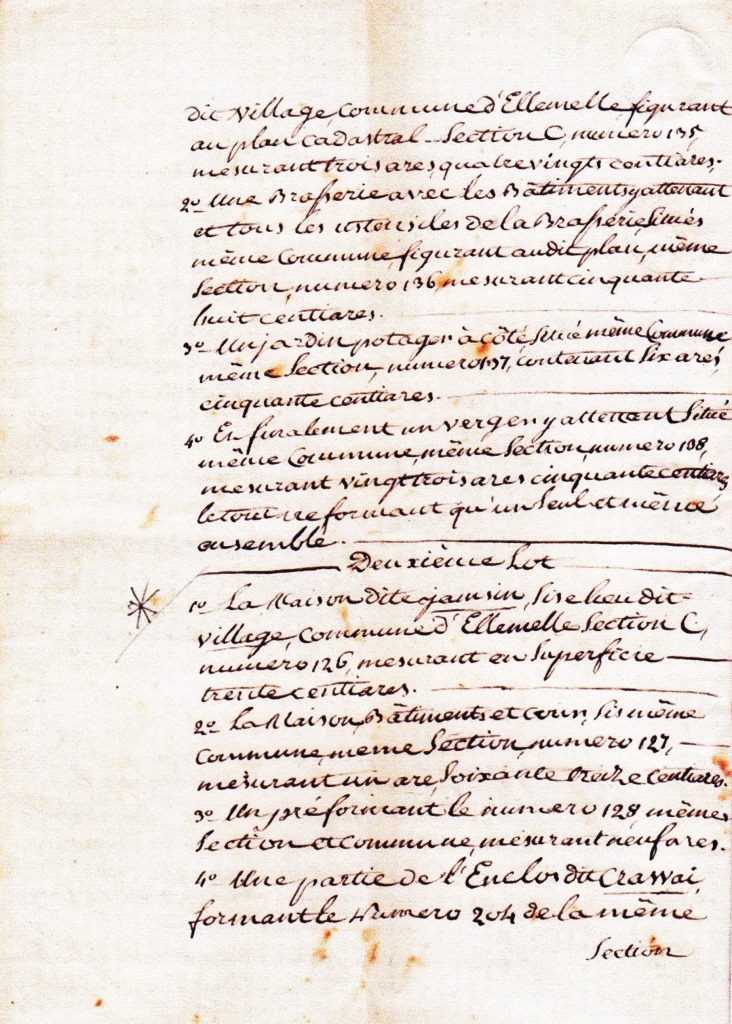 dit village, Commune d'Ellemelle figurant
au plan cadastral Section C, numero 135,
mesurant trois ares quatre vingts centiares.
2º Une Brasserie avec les Bâtiments y attenant
et tous les ustensiles de la Brasserie, Situés
même Commune, figurant audit plan, même
Section, numero 136, mesurant cinquante
huit centiares.
3º Un jardin potager à côté, Situé même Commune
même Section, numero 137, contenant Six ares,
cinquante centiares.
4º Et finalement un verger y attenant Situé
même Commune, même Section, numero 138,
mesurant vingt trois ares cinquante centiares
le tout ne formant qu'un Seul et même
ensemble.
Deuxième Lot
1º La Maison dite jamsin, Sise lieu dit=
village, Commune d'Ellemelle Section C,
numero 126, mesurant en Superficie
trente centiares.
2º La Maison, Bâtiments et cour, Sis même
Commune, meme Section, numero 127,
mesurant un are, Soixante treize Centiares.
3º Un pré formant le numero 128 même
Section et commune, mesurant neuf ares.
4º Une partie de l'Enclos dit Crawai
formant le Numero 204 de la même
Section